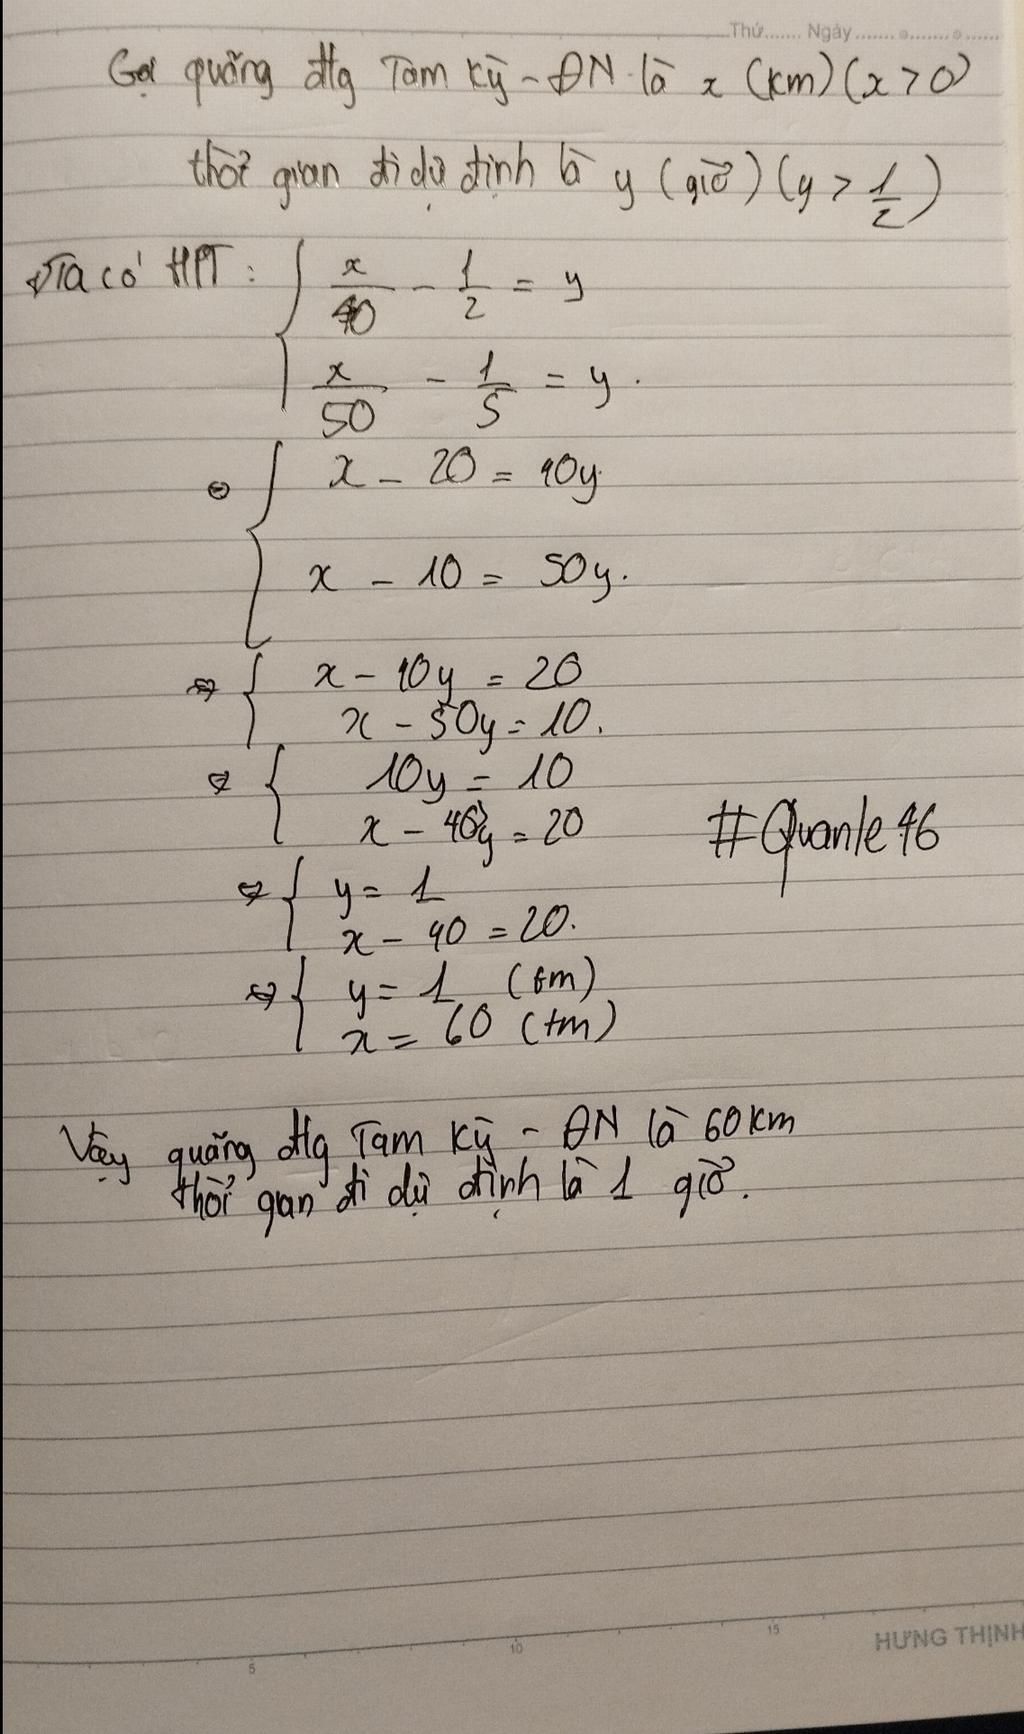 Thứ....... Ngày.......................
Gọi quãng đng Tam Kỳ - ĐN là x (km) (x > 0)
thời gian đi dự định là y (giờ) (y > 1/2)
Ta có HPT: { x/40 - 1/2 = y
x/50 - 1/5 = y.
⇔ { x - 20 = 40y
x - 10 = 50y.
⇔ { x - 40y = 20
x - 50y = 10.
⇔ { 10y = 10
x - 40y = 20
#Quanle46
⇔ { y = 1
x - 40 = 20.
⇔ { y = 1 (tm)
x = 60 (tm)
Vậy quãng đng Tam Kỳ - ĐN là 60 km
thời gian đi dự định là 1 giờ.
5 10 15
HƯNG THỊNH